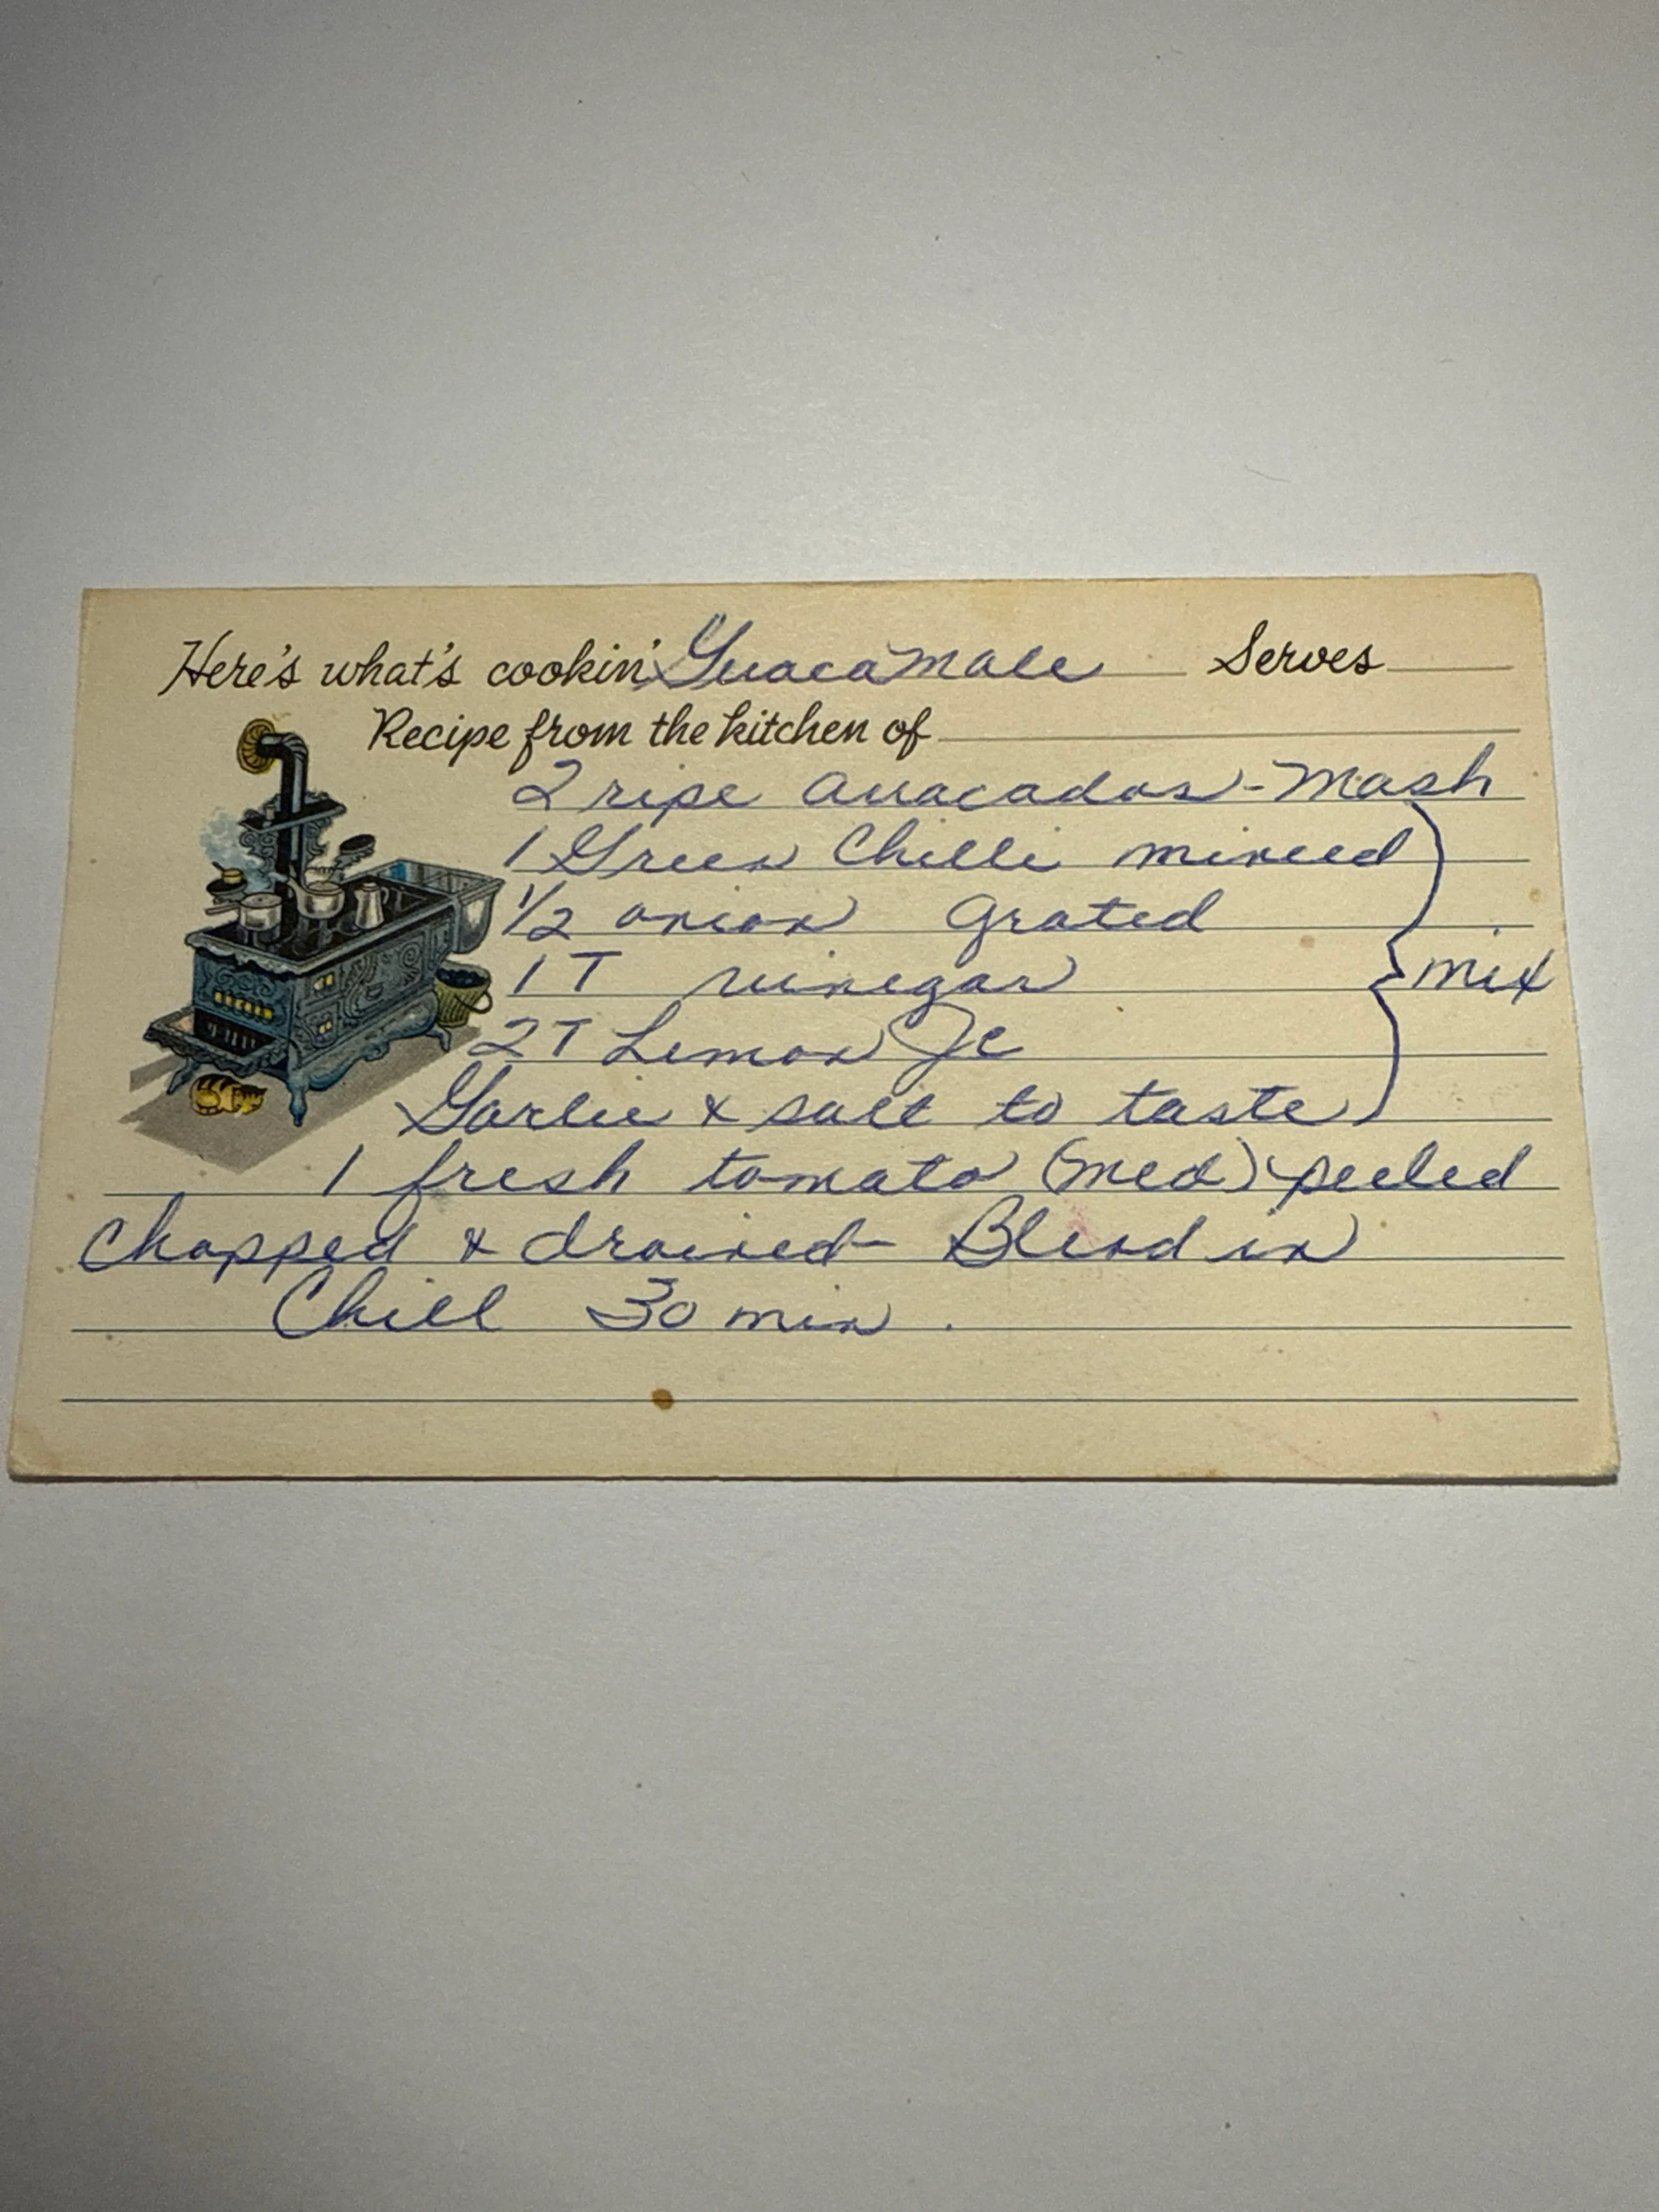 Here's what's cookin' Guacamole Serves
Recipe from the kitchen of
2 ripe avacados - Mash
1 Green Chilli minced
1/2 onion grated
1 T vinegar
mix
2T Lemon Jc
Garlic & salt to taste
1 fresh tomato (med) peeled
chopped & drained - Blend in
Chill 30 min.